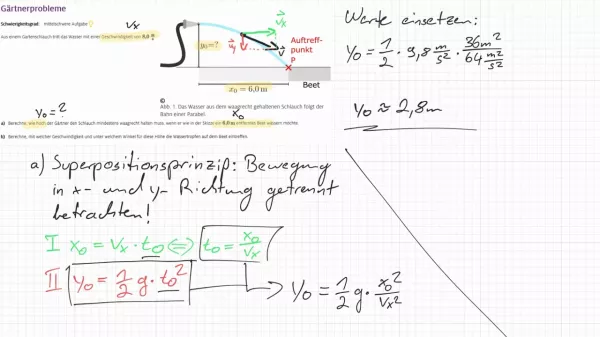 Gärtnerprobleme
Schwierigkeitsgrad: mittelschwere Aufgabe
vx
Aus einem Gartenschlauch tritt das Wasser mit einer Geschwindigkeit von 8,0 m/s
y₀=?
vx
vy
v
Auftreff-
punkt
P
x₀ = 6,0 m
Beet
©
Abb. 1 Das Wasser aus dem waagrecht gehaltenen Schlauch folgt der
Bahn einer Parabel.
y₀ = ?
x₀
a) Berechne, wie hoch der Gärtner den Schlauch mindestens waagrecht halten muss, wenn er wie in der Skizze ein 6,0 m entferntes Beet wässern möchte.
b) Berechne, mit welcher Geschwindigkeit und unter welchem Winkel für diese Höhe die Wassertropfen auf dem Beet eintreffen.
a) Superpositionsprinzip: Bewegung
in x- und y-Richtung getrennt
betrachten!
I x₀ = vx · t₀ ⇔ t₀ = x₀/vx
II y₀ = 1/2 g · t₀²
y₀ = 1/2 g · x₀²/vx²
Werte einsetzen:
y₀ = 1/2 · 9,8 m/s² · 36m²/64 m²/s²
y₀ ≈ 2,8m